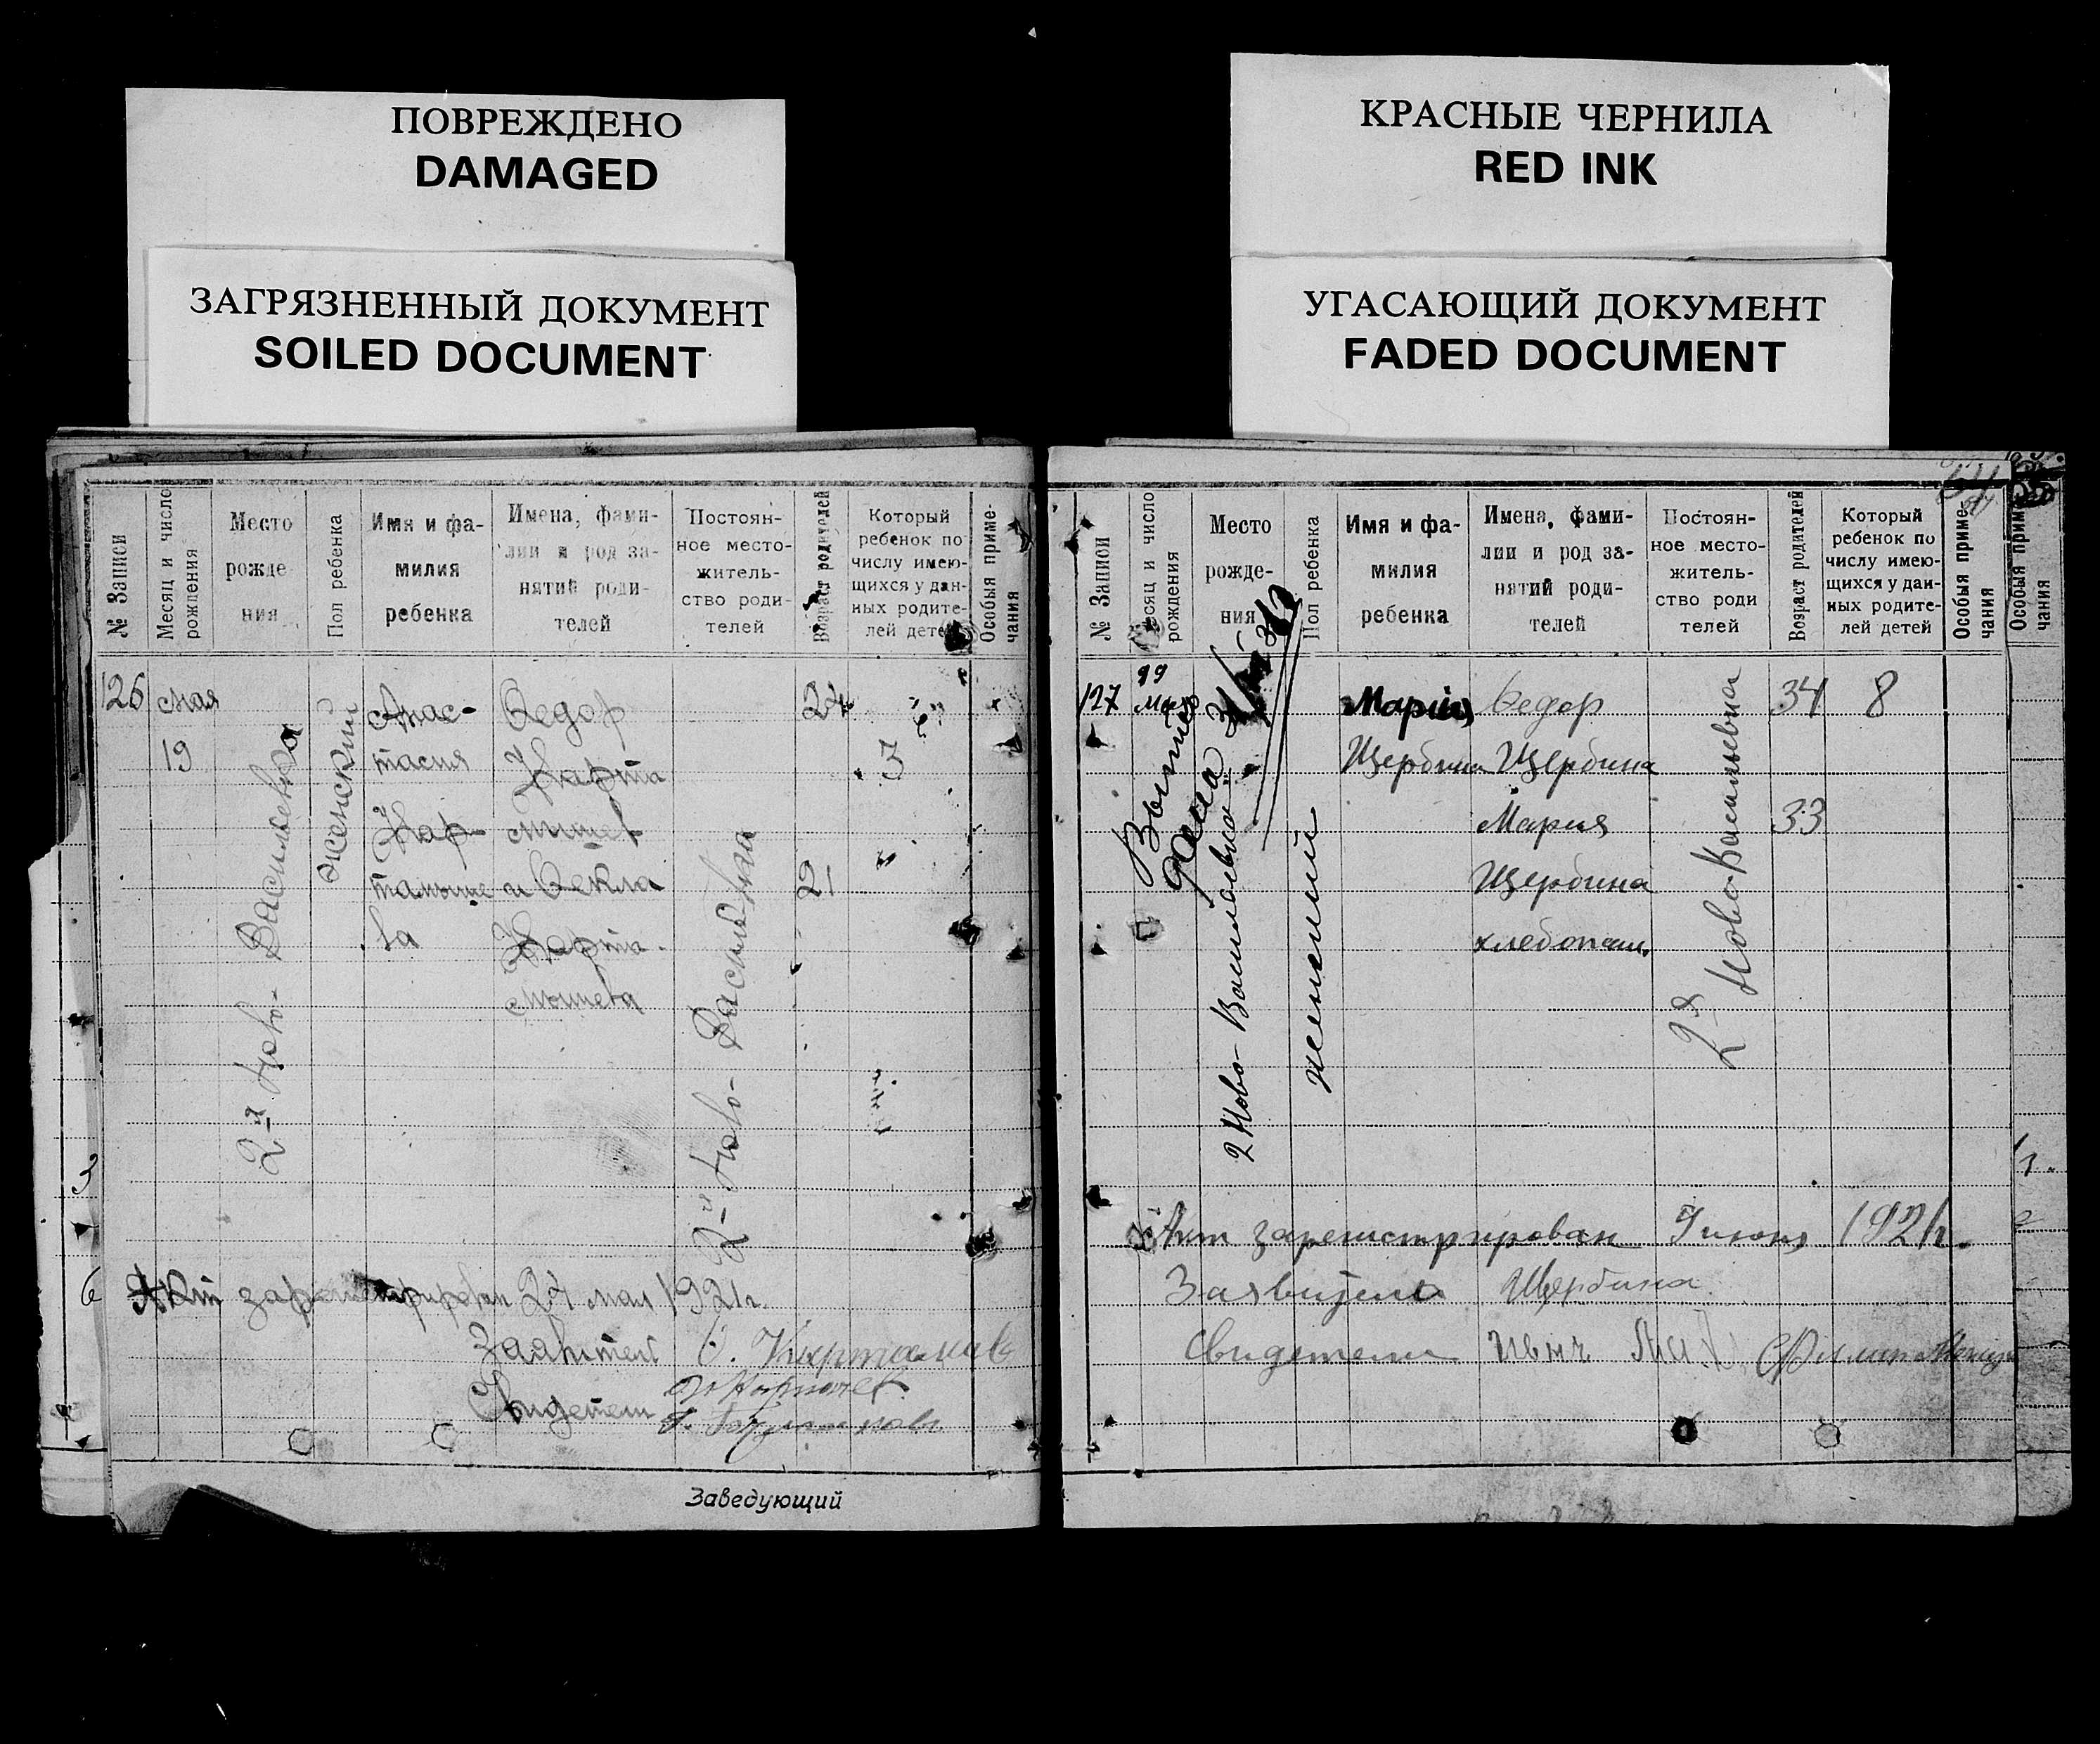 ПОВРЕЖДЕНО
DAMAGED
ЗАГРЯЗНЕННЫЙ ДОКУМЕНТ
SOILED DOCUMENT
КРАСНЫЕ ЧЕРНИЛА
RED INK
УГАСАЮЩИЙ ДОКУМЕНТ
FADED DOCUMENT
№ Записи
Месяц и число рождения
Место рожде- ния
Пол ребенка
Имя и фа- милия ребенка
Имена, фами- лии и род за- нятий роди- телей
Постоян- ное место- житель- ство роди- телей
Возраст родителей
Который ребенок по числу имею- щихся у дан- ных родите- лей детей
Особыя приме- чания
126 мая Анас- Федор 24
19 тасия 3
2-я Ново- Васильевка
женский
и Фекла 21
ва
2-я Ново- Васильевка
Акт зарегистрирован 24 мая 1921г.
Заявител
Свидетели
Заведующий
№ Записи
Месяц и число рождения
Место рожде- ния
Пол ребенка
Имя и фа- милия ребенка
Имена, фами- лии и род за- нятий роди- телей
Постоян- ное место- житель- ство роди телей
Возраст родителей
Который ребенок по числу имею- щихся у дан- ных родите- лей детей
Особыя приме- чания
Особыя приме- чания
127 Мария Федор 34 8
Щербина Щербина
Мария 33
Щербина
хлебопаш.
2 Ново-Васильевка
женский
2я Ново-Васильевка
дана
Акт зарегистрирован 9 июня 1921г.
Заявитель Щербина
Свидетели